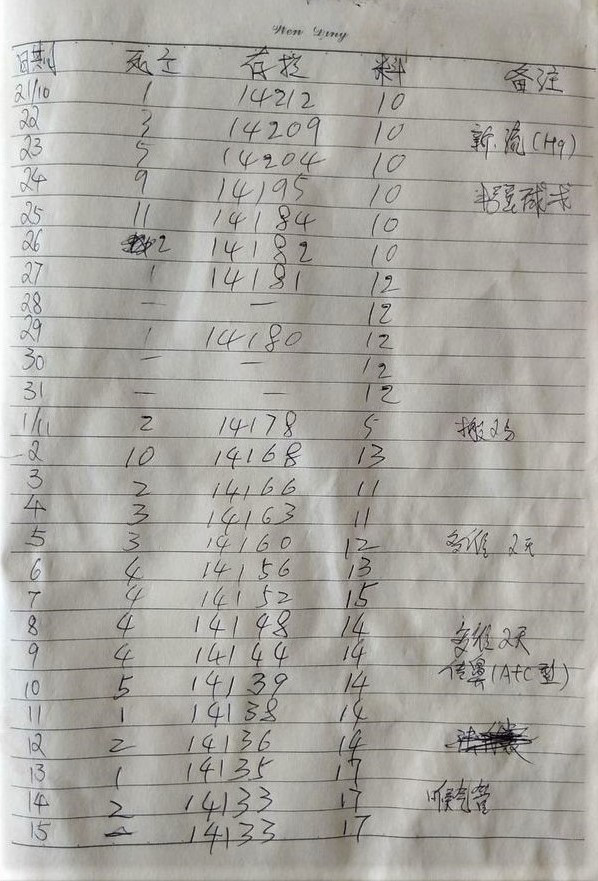 日期 死亡 存栏 料 备注
21/10 1 14212 10
22 3 14209 10 新.流(H9)
23 5 14204 10
24 9 14195 10
25 11 14184 10
26 2 14182 10
27 1 14181 12
28 — — 12
29 1 14180 12
30 — — 12
31 — — 12
1/11 2 14178 5
2 10 14168 13
3 2 14166 11
4 3 14163 11
5 3 14160 12 多维 2天
6 4 14156 13
7 4 14152 15
8 4 14148 14 多维 2天
9 4 14144 14 传鼻(A+C型)
10 5 14139 14
11 1 14138 14
12 2 14136 14
13 1 14135 17
14 2 14133 17 喉气管
15 — 14133 17